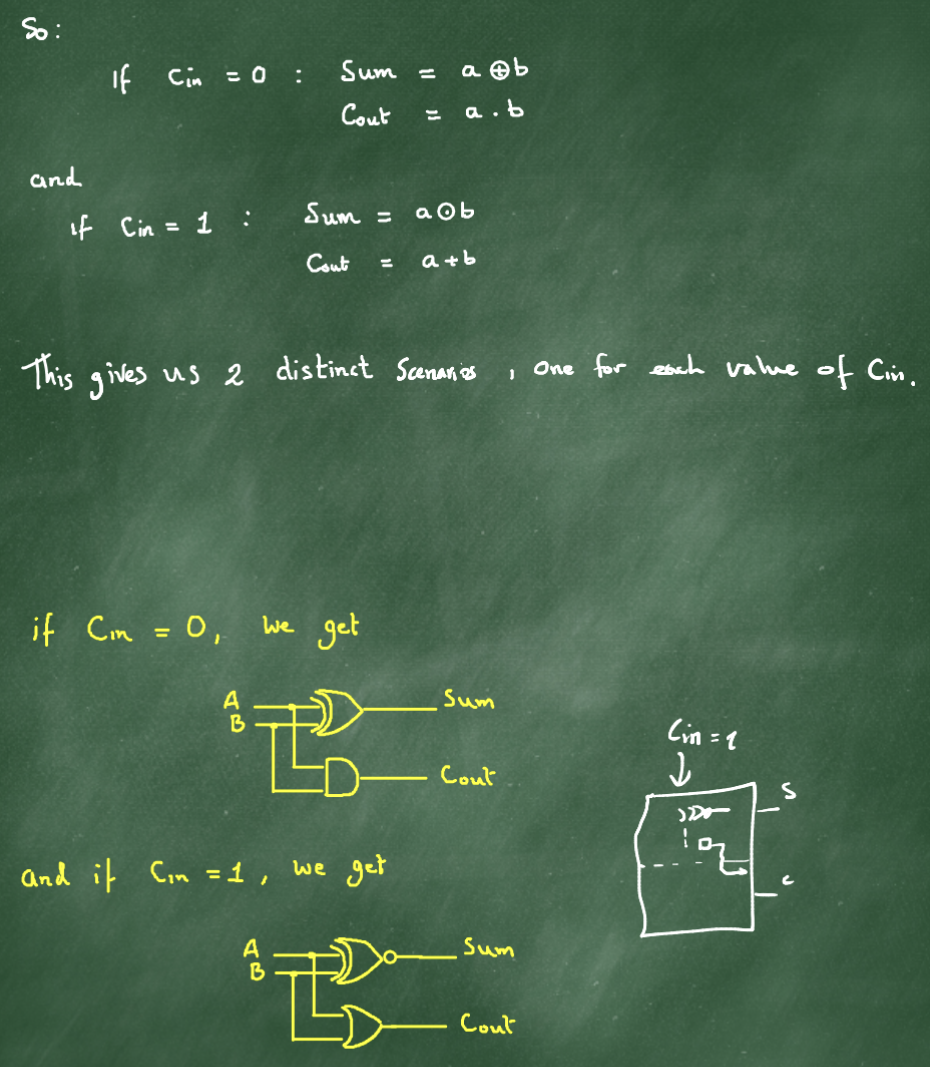 So:
If Cin = 0 : Sum = a ⊕ b
Cout = a . b
and
if Cin = 1 : Sum = a ⊙ b
Cout = a + b
This gives us 2 distinct Scenarios , one for each value of Cin.
if Cin = 0, we get
A
B
Sum
Cout
Cin = 1
S
c
and if Cin = 1, we get
A
B
Sum
Cout